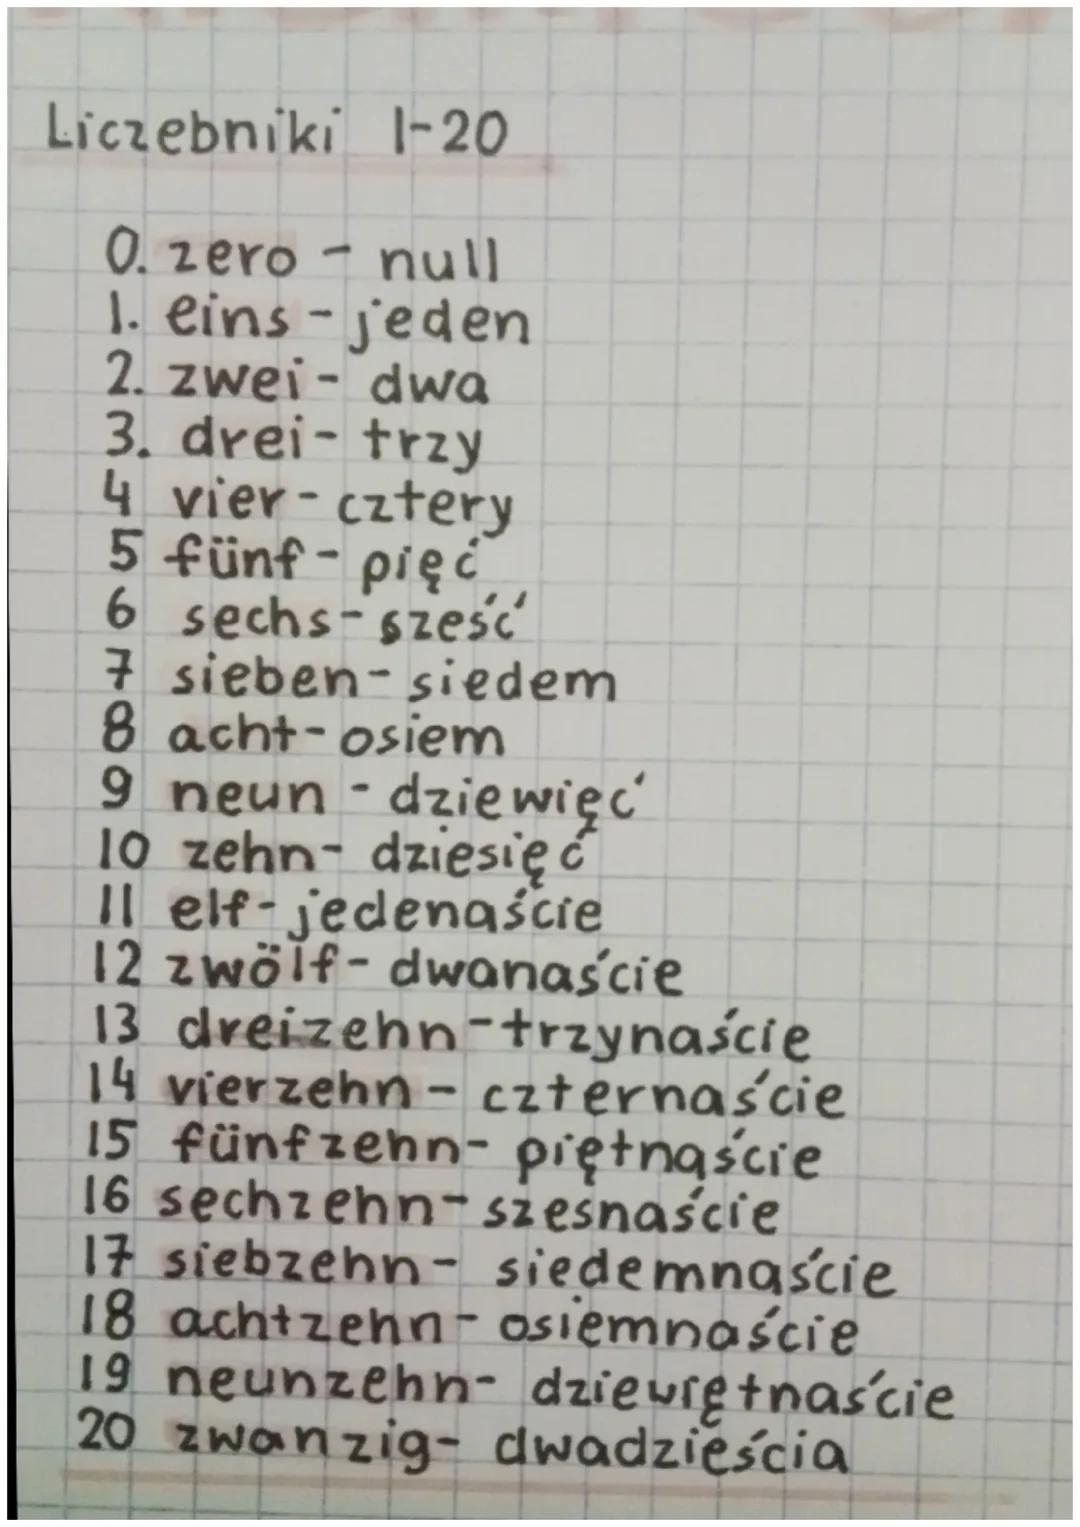 Liczebniki 1-20
0. zero - null
1. eins - jeden
2. zwei - dwa
3. drei - trzy
4 vier - cztery
5 fünf - pięć
6 sechs - sześć
7 sieben - siedem
8 acht - osiem
9 neun - dziewięć
10 zehn - dziesięć
11 elf - jedenaście
12 zwölf - dwanaście
13 dreizehn - trzynaście
14 vierzehn - czternaście
15 fünfzehn - piętnąście
16 sechzehn - szesnaście
17 siebzehn - siedemnaście
18 achtzehn - osiemnaście
19 neunzehn - dziewiętnaście
20 zwanzig - dwadzięścia